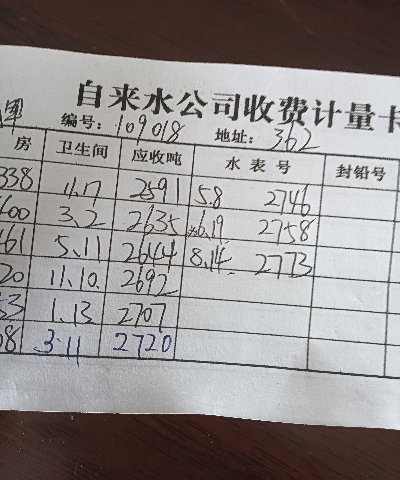 自来水公司收费计量卡
编号: 109018 地址: 362
房 卫生间 应收吨 水表号 封铅号
338 11.17 2591 5.8 2746
600 3.2 2635 6.19 2758
661 5.11 2644 8.14 2773
20 11.10 2692
53 1.13 2707
08 3.11 2720